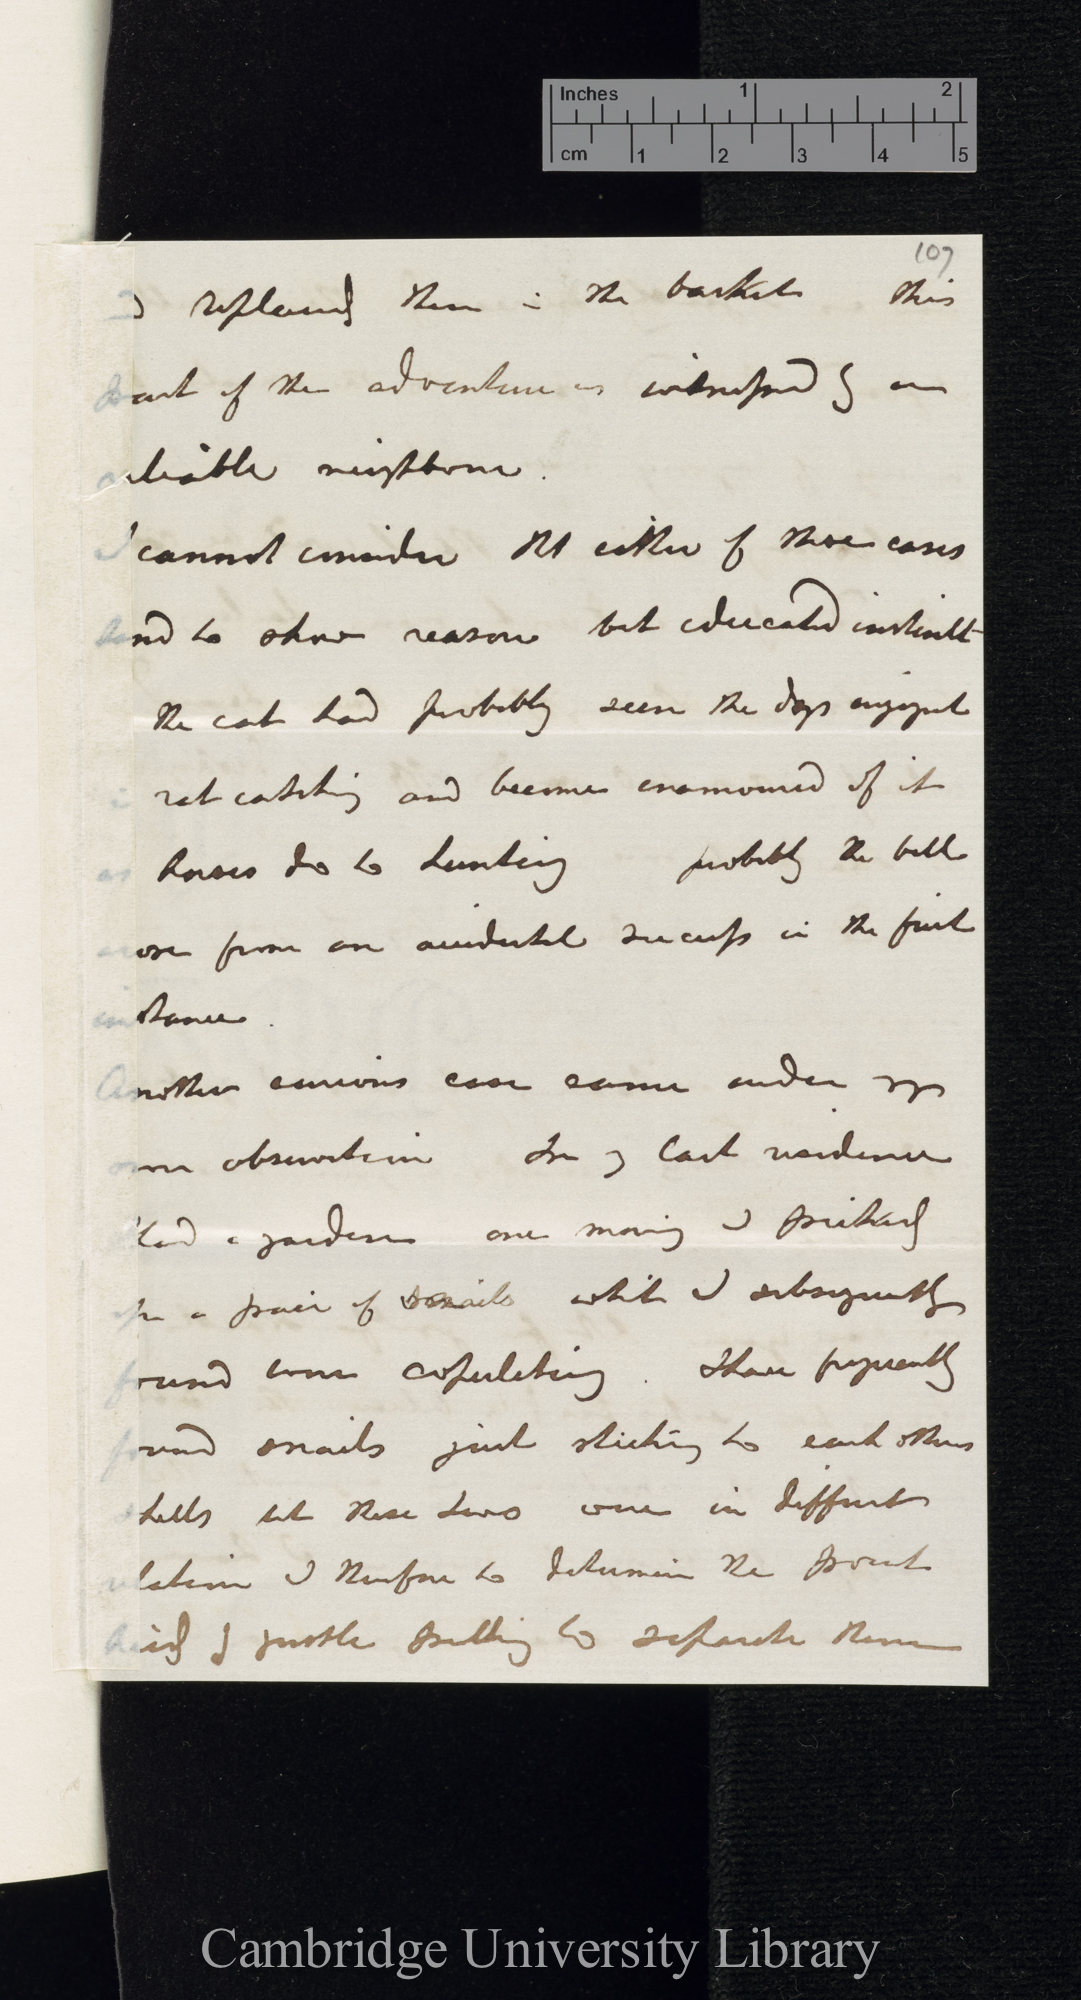 Inches 1 2
cm 1 2 3 4 5
107
I replaced them in the basket this
part of the adventure is witnessed by a
reliable neighbour.
I cannot consider that either of these cases
tend to show reason but educated instinct
the cat had probably seen the dogs enjoyment
rat catching and become enamoured of it
as horses do to hunting probably the bell
arose from an accidental success in the first
instance.
Another curious case came under my
own observation In my last residence
I had a garden one morning I picked
up a pair of snails which I subsequently
found were copulating. I have frequently
found snails just sticking to each others
shells but these two were in different
relation I therefore to determine the point
tried by gentle pulling to separate them
Cambridge University Library